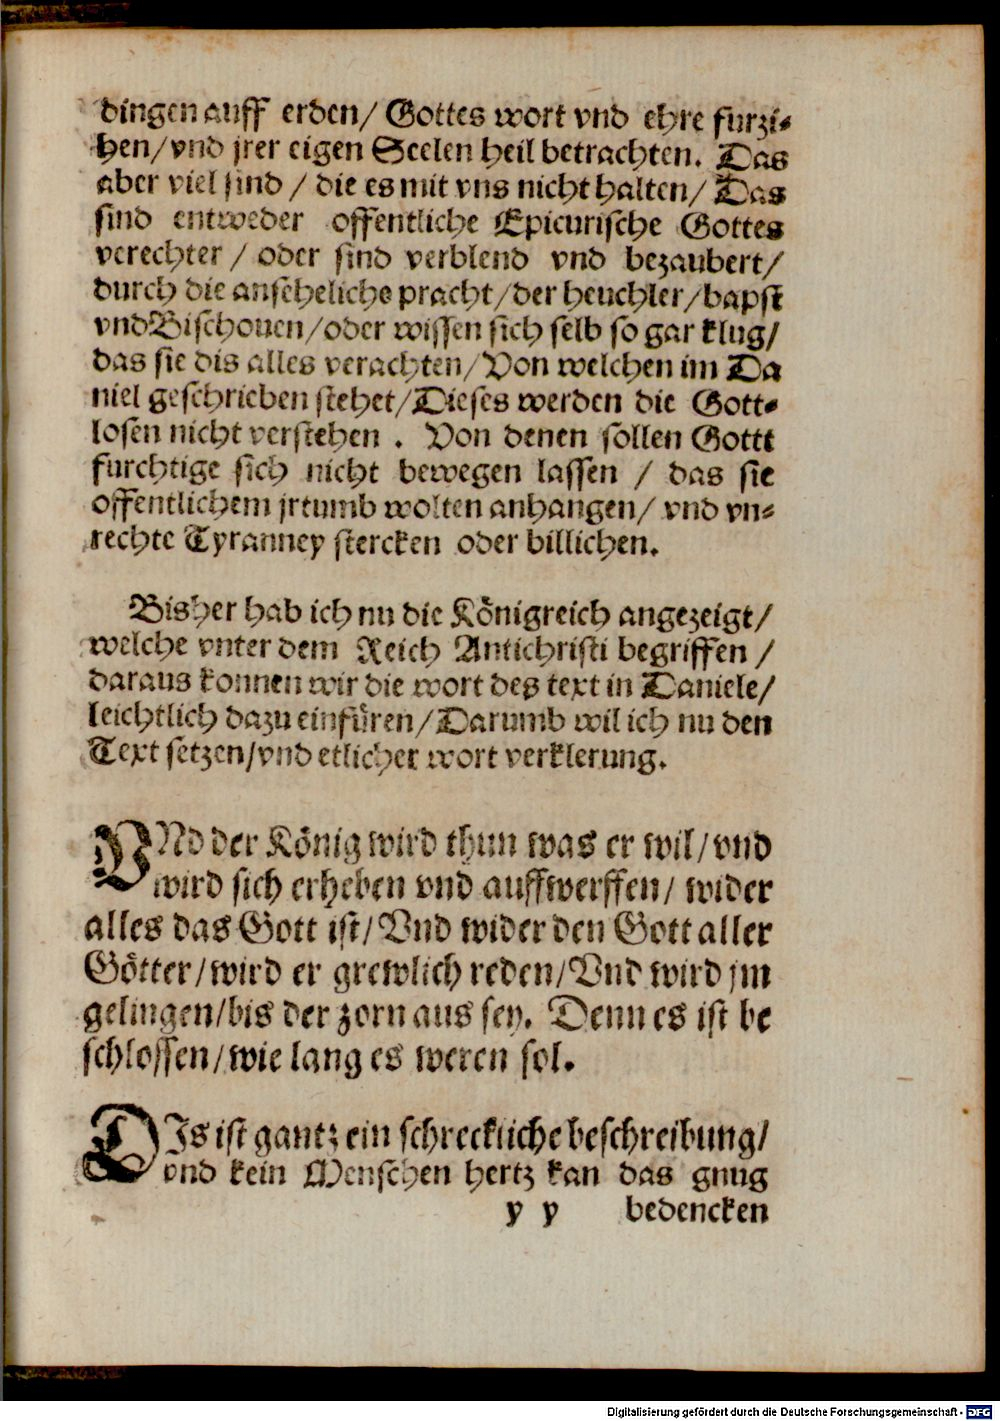 dingen auff erden/ Gottes wort vnd ehre furzi⸗
hen/vnd jrer eigen Seelen heil betrachten. Das
aber viel sind / die es mit vns nicht halten/ Das
sind entweder offentliche Epicurische Gottes
verechter / oder sind verblend vnd bezaubert/
durch die anseheliche pracht/der heuchler/bapst
vnd Bischouen/oder wissen sich selb so gar klug/
das sie dis alles verachten/Von welchen im Da
niel geschrieben stehet/Dieses werden die Gott⸗
losen nicht verstehen . Von denen sollen Gottt
furchtige sich nicht bewegen lassen / das sie
offentlichem jrtumb wolten anhangen/ vnd vn⸗
rechte Tyranney stercken oder billichen.
Bisher hab ich nu die Königreich angezeigt/
welche vnter dem Reich Antichristi begriffen /
daraus konnen wir die wort des text in Daniele/
leichtlich dazu einfüren/Darumb wil ich nu den
Text setzen/vnd etlicher wort verklerung.
VNd der König wird thun was er wil/vnd
wird sich erheben vnd auffwerffen/ wider
alles das Gott ist/Vnd wider den Gott aller
Götter/wird er grewlich reden/Vnd wird jm
gelingen/bis der zorn aus sey. Denn es ist be
schlossen/wie lang es weren sol.
DIs ist gantz ein schreckliche beschreibung/
vnd kein Menschen hertz kan das gnug
y y bedencken
Digitalisierung gefördert durch die Deutsche Forschungsgemeinschaft - DFG